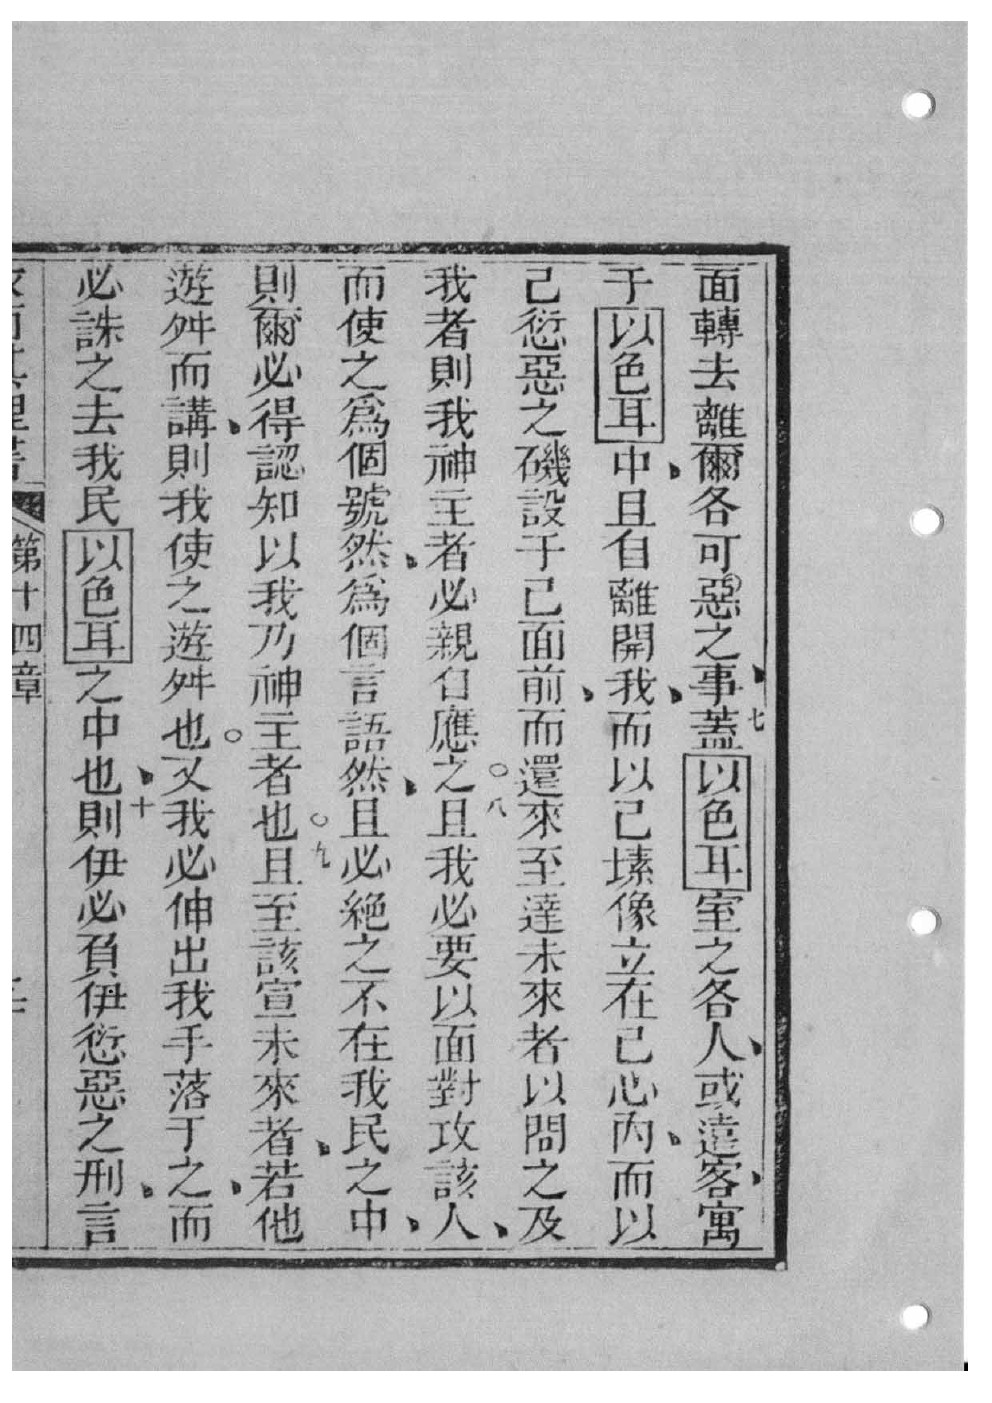 面轉去離爾各可惡之事、七蓋以色耳室之各人、或遠客、寓
于以色耳中、且自離開我、而以己壉像立在己心內、而以
己愆惡之磯設于己面前、而還來至達未來者以問之及
我者、則我神主者必親自應之。八且我必要以面對攻該人、
而使之爲個號然、爲個言語然、且必絕之不在我民之中、
則爾必得認知以我乃神主者也。九且至該宣未來者、若他
遊舛而講、則我使之遊舛也。又我必伸出我手落于之、而
必誅之去我民以色耳之中也、十則伊必負伊愆惡之刑、言
第十四章